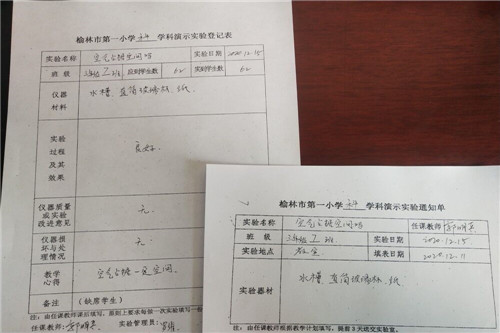 榆林市第一小学 科 学科演示实验登记表
实验名称 空气占据空间吗 实验日期 2020.12.15
班 级 三年级2班 应到学生数 62 实到学生数 62
仪器材料 水槽、直筒玻璃杯、纸
实验过程及其效果 良好.
仪器质量或实验改进意见 无.
仪器损坏与处理情况 无.
教学心得 空气占据一定空间.
备注 (缺席学生)
注:由任课教师课后填写,原则上要求每做一次实验填写一份
任课教师: 实验管理员:
榆林市第一小学 科 学科演示实验通知单
实验名称 空气占据空间吗 任课教师
班 级 三年级2班 实验日期 2020.12.15
实验地点 教室 填表日期 2020.12.11
实验器材 水槽、直筒玻璃杯、纸
注:由任课教师根据教学计划填写,提前3天送交实验室。